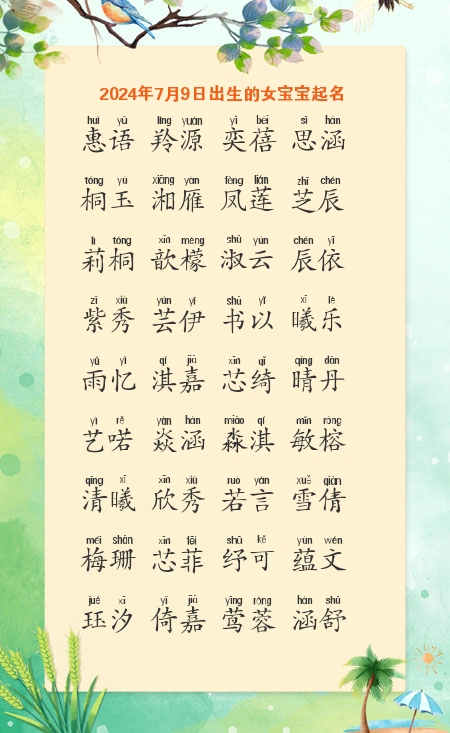 2024年7月9日出生的女宝宝起名
huì yǔ líng yuán yì bèi sī hán
惠语 羚源 奕蓓 思涵
tóng yù xiāng yàn fèng lián zhī chén
桐玉 湘雁 凤莲 芝辰
lì tóng xīn méng shū yún chén yī
莉桐 歆檬 淑云 辰依
zǐ xiù yún yī shū yǐ xī lè
紫秀 芸伊 书以 曦乐
yǔ yì qí jiā xīn qǐ qíng dān
雨忆 淇嘉 芯绮 晴丹
yì rě yàn hán miǎo qí mǐn róng
艺喏 焱涵 淼淇 敏榕
qīng xī xīn xiù ruò yán xuě qiàn
清曦 欣秀 若言 雪倩
méi shān xīn fēi shū kě yùn wén
梅珊 芯菲 纾可 蕴文
jué xī yǐ jiā yīng róng hán shū
珏汐 倚嘉 莺蓉 涵舒